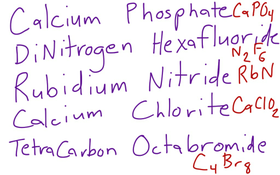 Calcium Phosphate CaPO4
DiNitrogen Hexafluoride
N2F6
Rubidium Nitride RbN
Calcium Chlorite CaClO2
TetraCarbon Octabromide
C4Br8